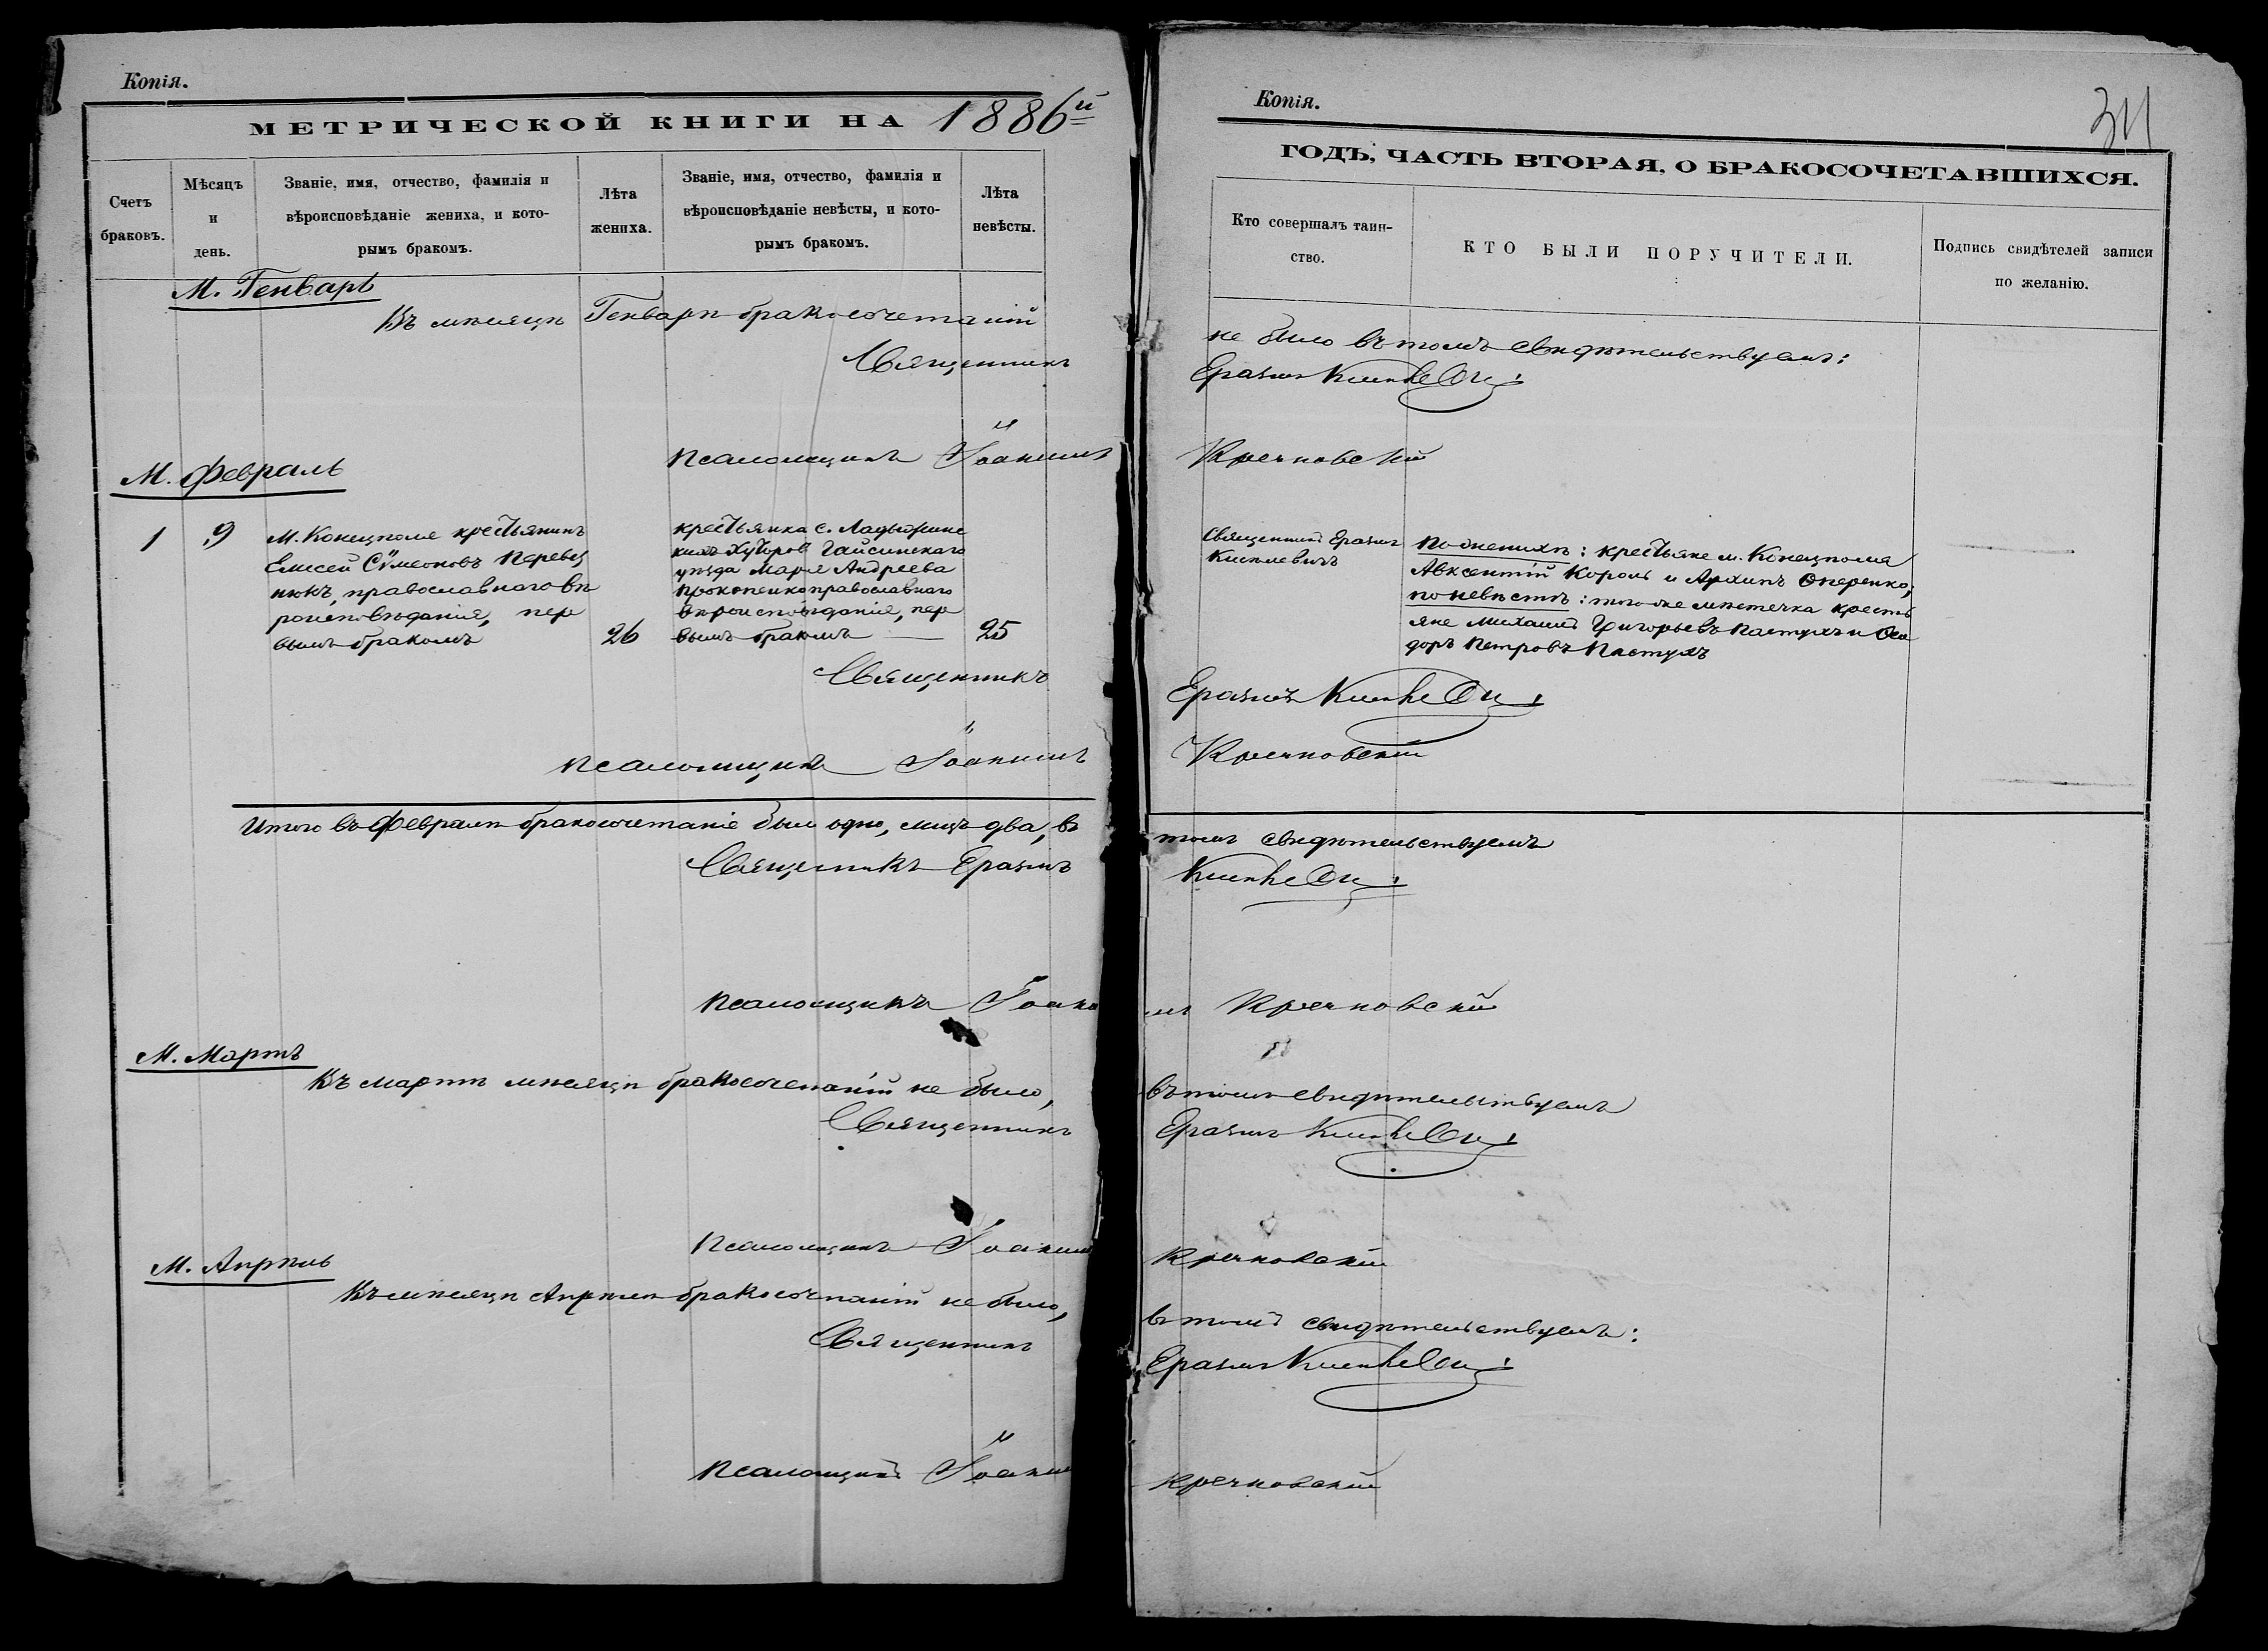 Копія.
МЕТРИЧЕСКОЙ КНИГИ НА 1886й
Счетъ браковъ.
Мѣсяцъ и день.
Званіе, имя, отчество, фамилія и вѣроисповѣданіе жениха, и которымъ бракомъ.
Лѣта жениха.
Званіе, имя, отчество, фамилія и вѣроисповѣданіе невѣсты, и которымъ бракомъ.
Лѣта невѣсты.
М. Генварь
Въ мѣсяцѣ Генварѣ бракосочетаній
Священникъ
Псаломщикъ Іоакимъ
М. Февраль
1 9
М. Конецполя крестьянинъ
Елисей Сѵмеоновъ Перевез
нюкъ, православнаго вѣ
роисповѣданія, пер
вымъ бракомъ
26
крестьянка с. Ладыжинс
кихъ Хуторов Гайсинскаго
уѣзда Марія Андреева
Прокопенко православнаго
вѣроисповѣданія, пер
вымъ бракомъ
25
Священникъ
Псаломщикъ Іоакимъ
Итого въ Февралѣ бракосочетаніе было одно, лицъ два, въ
Священникъ Еразмъ
Псаломщикъ Іоаки
М. Мартъ
Въ мартѣ мѣсяцѣ бракосочетаній не было,
Священникъ
Псаломщикъ Іоакимъ
М. Апрѣль
Въ мѣсяцѣ Апрѣлѣ бракосочетаній не было,
Священникъ
Псаломщикъ Іоаким
Копія.
311
ГОДЪ, ЧАСТЬ ВТОРАЯ, О БРАКОСОЧЕТАВШИХСЯ.
Кто совершалъ таинство.
КТО БЫЛИ ПОРУЧИТЕЛИ.
Подпись свидѣтелей записи по желанію.
не было въ томъ свидѣтельствуемъ:
Еразмъ
Кречковскій
Священникъ Еразмъ
По женихѣ: крестьяне м. Конецполя
Авксентій Король и Архипъ Оперенко;
по невѣстѣ: того же мѣстечка кресть
яне Михаилъ Григорьевъ Пастухъ и Ѳео
доръ Петровъ Пастухъ
Еразмъ
Кречковскій
томъ свидѣтельствуемъ
мъ Кречковскій
въ томъ свидѣтельствуемъ
Еразмъ
Кречковскій
въ томъ свидѣтельствуемъ:
Еразмъ
Кречковскій